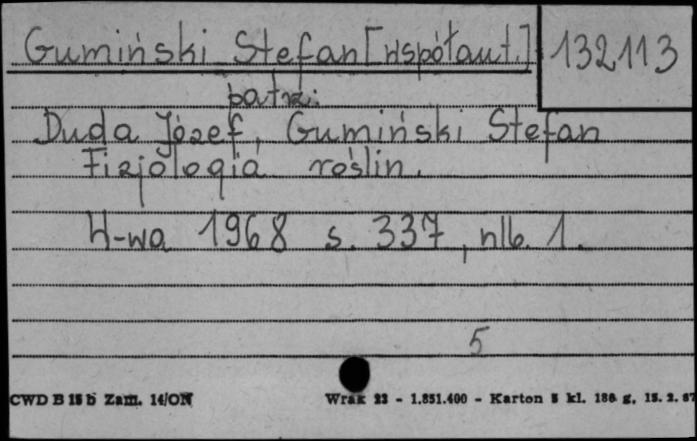 Gumiński Stefan [współaut.] 132113
patrz:
Duda Józef, Gumiński Stefan
Fizjologia roślin.
W-wa 1968 s. 337, nlb. 1.
5
CWD B 15 b Zam. 14/ON Wrak 23 - 1.851.400 - Karton 5 kl. 180 g, 15. 2. 67